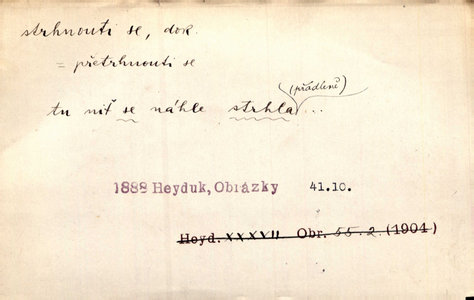 strhnouti se, dok.
= přetrhnouti se
(přádleně)
tu niť se náhle strhla ...
1888 Heyduk, Obrázky 41.10.
Heyd. XXXVII Obr. 55.2. (1904)